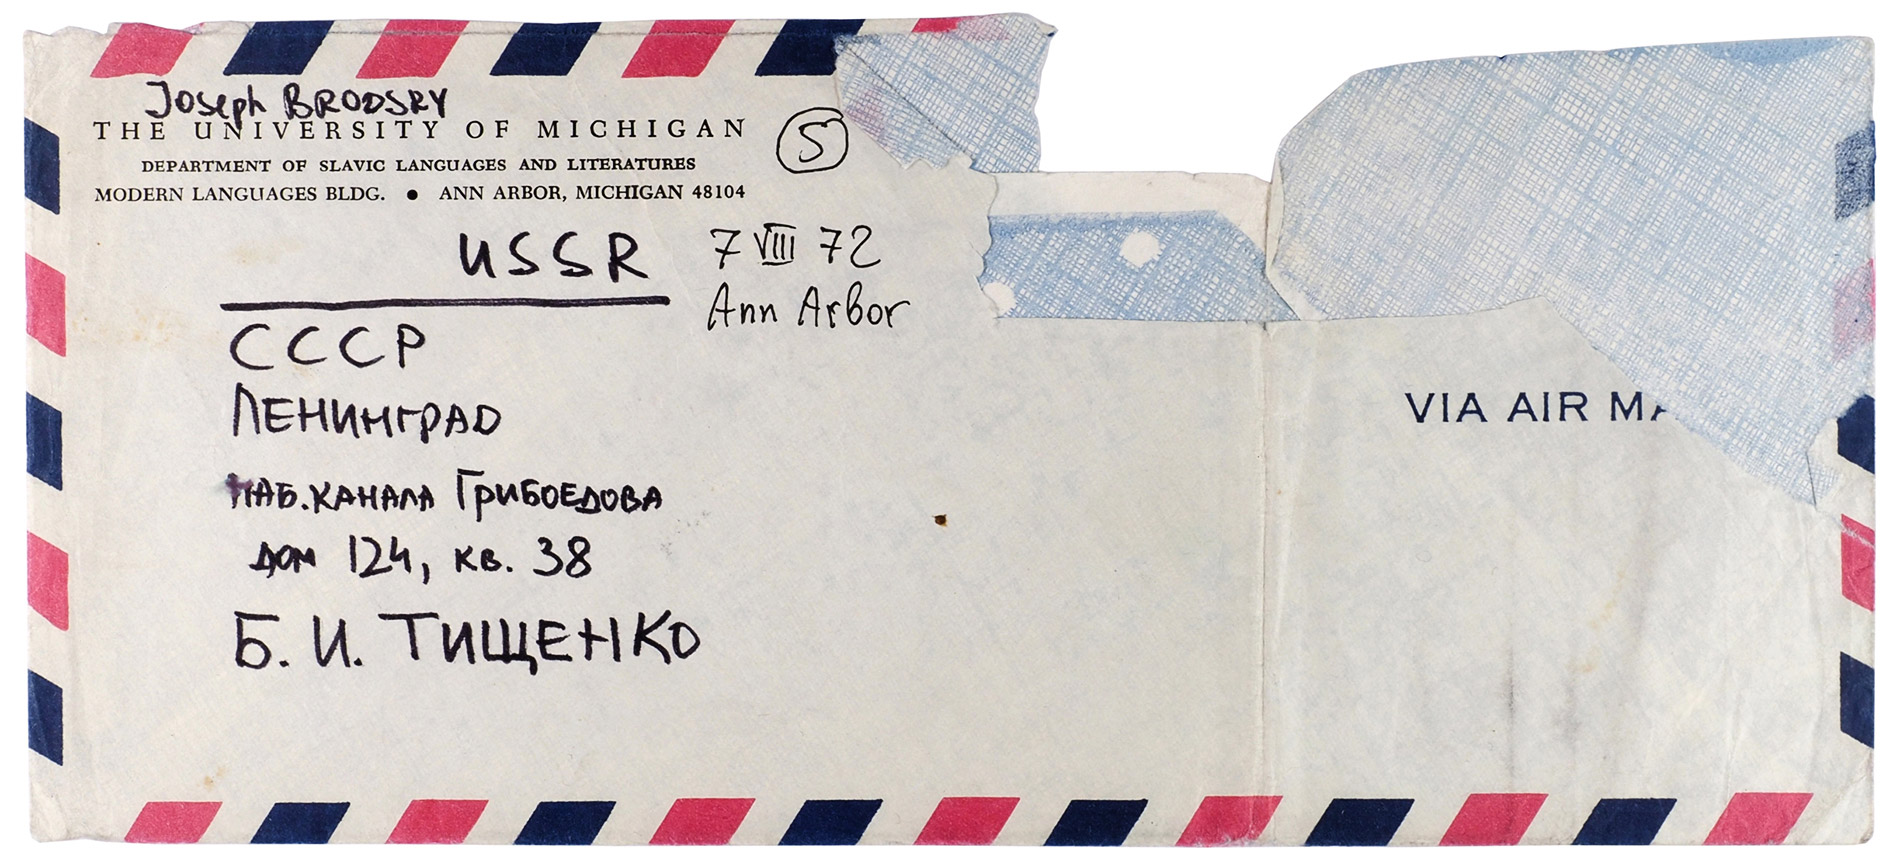 Joseph BRODSKY
THE UNIVERSITY OF MICHIGAN
DEPARTMENT OF SLAVIC LANGUAGES AND LITERATURES
MODERN LANGUAGES BLDG. • ANN ARBOR, MICHIGAN 48104
5
USSR
7 VIII 72
Ann Arbor
СССР
ЛЕНИНГРАД
НАБ. КАНАЛА ГРИБОЕДОВА
ДОМ 124, кв. 38
Б. И. ТИЩЕНКО
VIA AIR MA